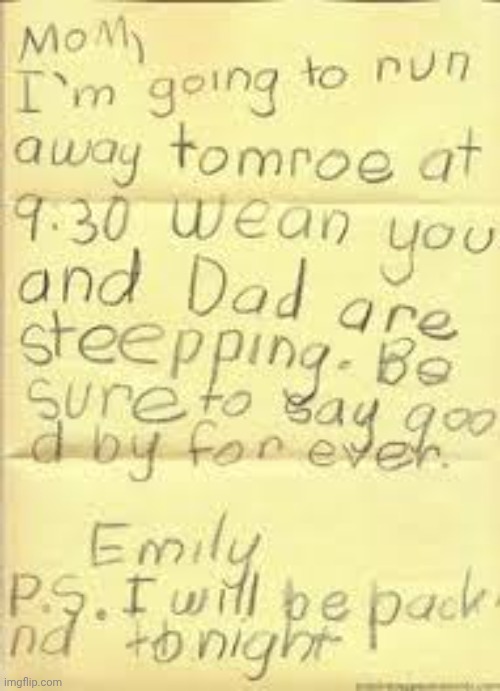 MOM,
I'm going to run
away tomroe at
9.30 wean you
and Dad are
steepping. Be
sure to say goo
d by for ever.
Emily
P.S. I will be pack
nd tonight
imgflip.com